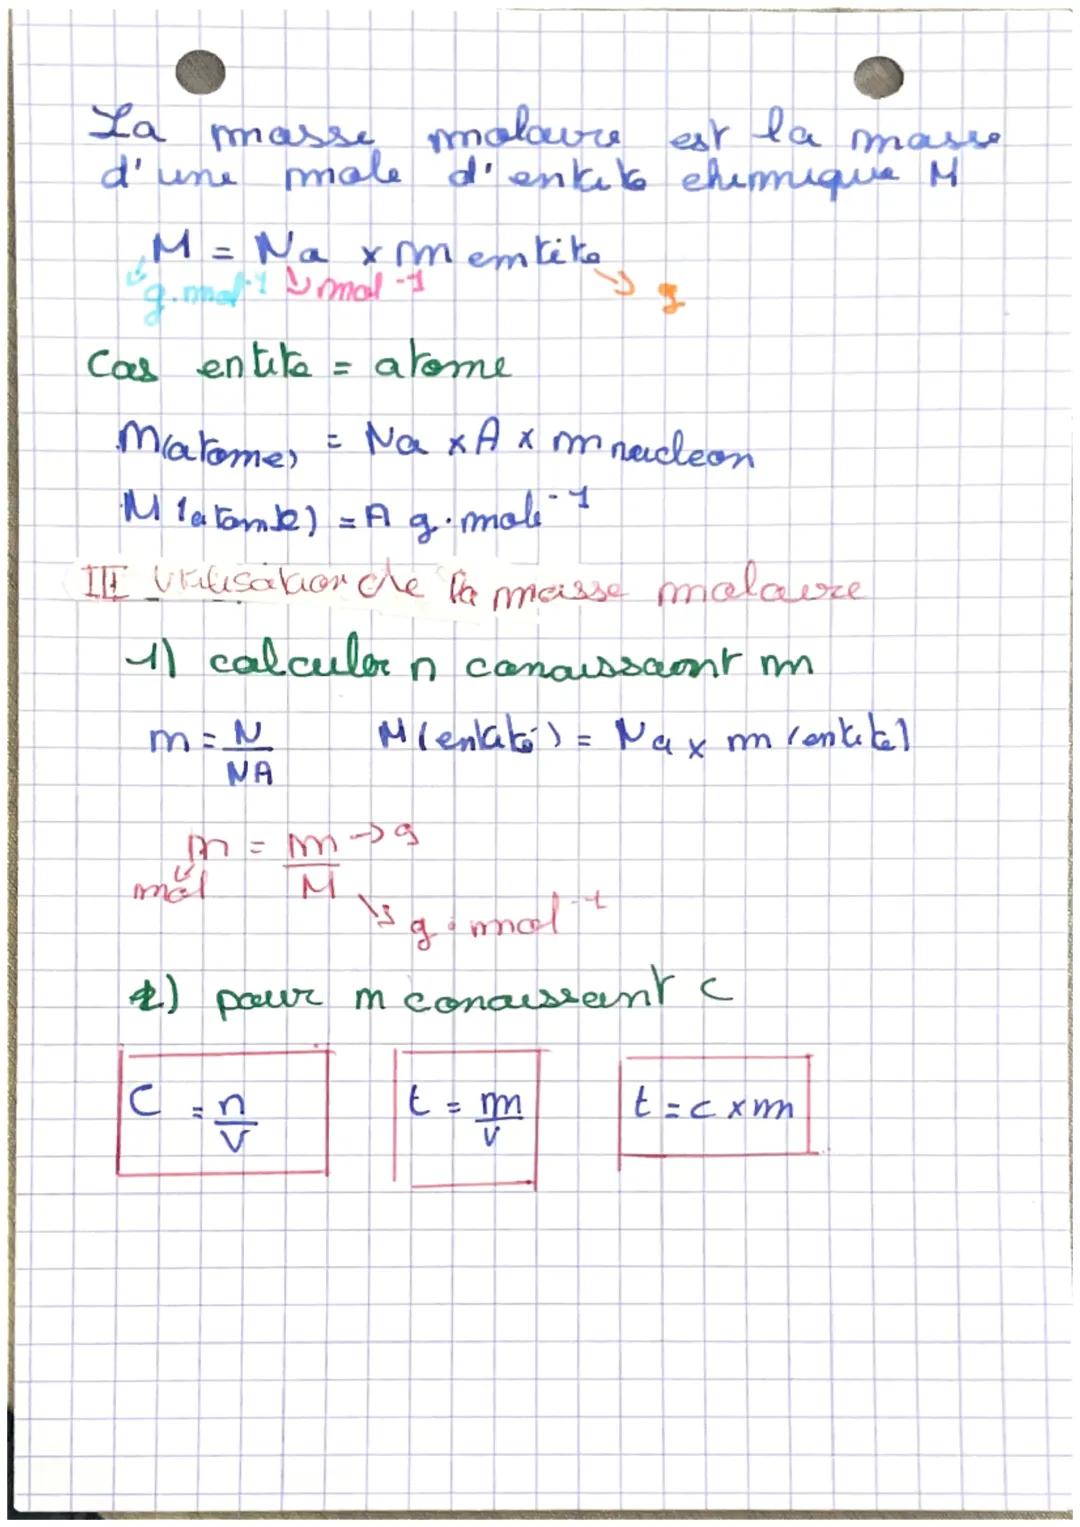 La masse molaire est la masse
d'une mole d'entité chimique M
M = Na x m entité
g.mol-1 mol-1 g
Cas entité = atome
M(atome) = Na x A x m nucleon
M(atome) = A g.mol-1
III Utilisation de la masse molaire
1) calculer n conaissant m
n = N/NA M(entité) = Na x m(entité)
n = m/M → g
mol
g.mol-1
2) pour m conaissant c
C = n/V t = m/V t = c x m